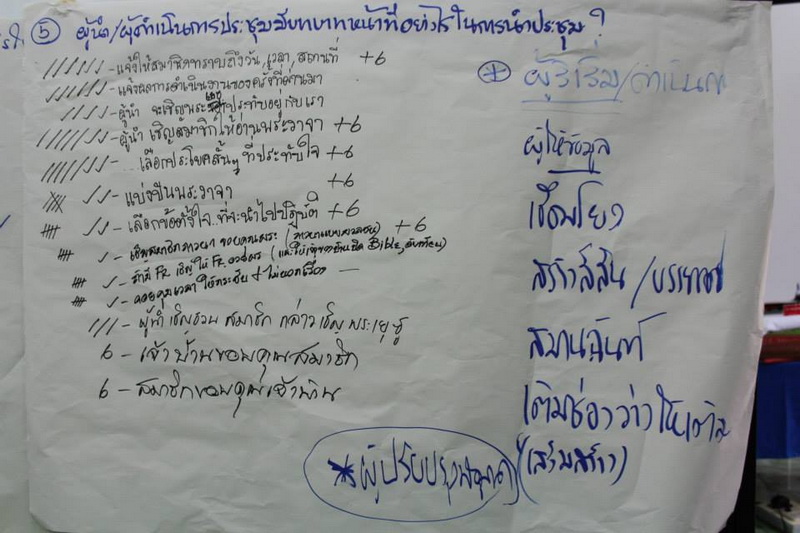 ⑤ ผู้นำ/ผู้ดำเนินการประชุมมีบทบาทหน้าที่อย่างไรในการนำประชุม?
- แจ้งให้สมาชิกทราบถึงวัน, เวลา, สถานที่ +6
- แจ้งผลการดำเนินงานของครั้งที่ผ่านมา
- ผู้นำ จะเชิญพระ ประทับอยู่กับเรา
- ผู้นำ เชิญสมาชิกให้อ่านพระวาจา +6
- เลือกประโยคสั้นๆ ที่ประทับใจ +6
- แบ่งปันพระวาจา +6
- เลือกข้อตั้งใจ ที่จะนำไปปฏิบัติ +6
- เชิญสมาชิกภาวนา ขอบคุณพระ +6
- ถ้ามี Fr. เชิญให้ Fr. อวยพร Bible,
- คอยคุมเวลา ให้กระชับ + ไม่นอกเรื่อง
/// - ผู้นำ เชิญชวน สมาชิก กล่าวเชิญ พระเยซู
6 - เจ้าบ้านขอบคุณสมาชิก
6 - สมาชิกขอบคุณเจ้าบ้าน
ผู้ริเริ่ม/ดำเนินการ
ผู้ให้ข้อมูล
เชื่อมโยง
สร้างสีสัน /บรรยากาศ
สมานฉันท์
เติมช่องว่างให้เต็ม
(เสริมสร้าง)